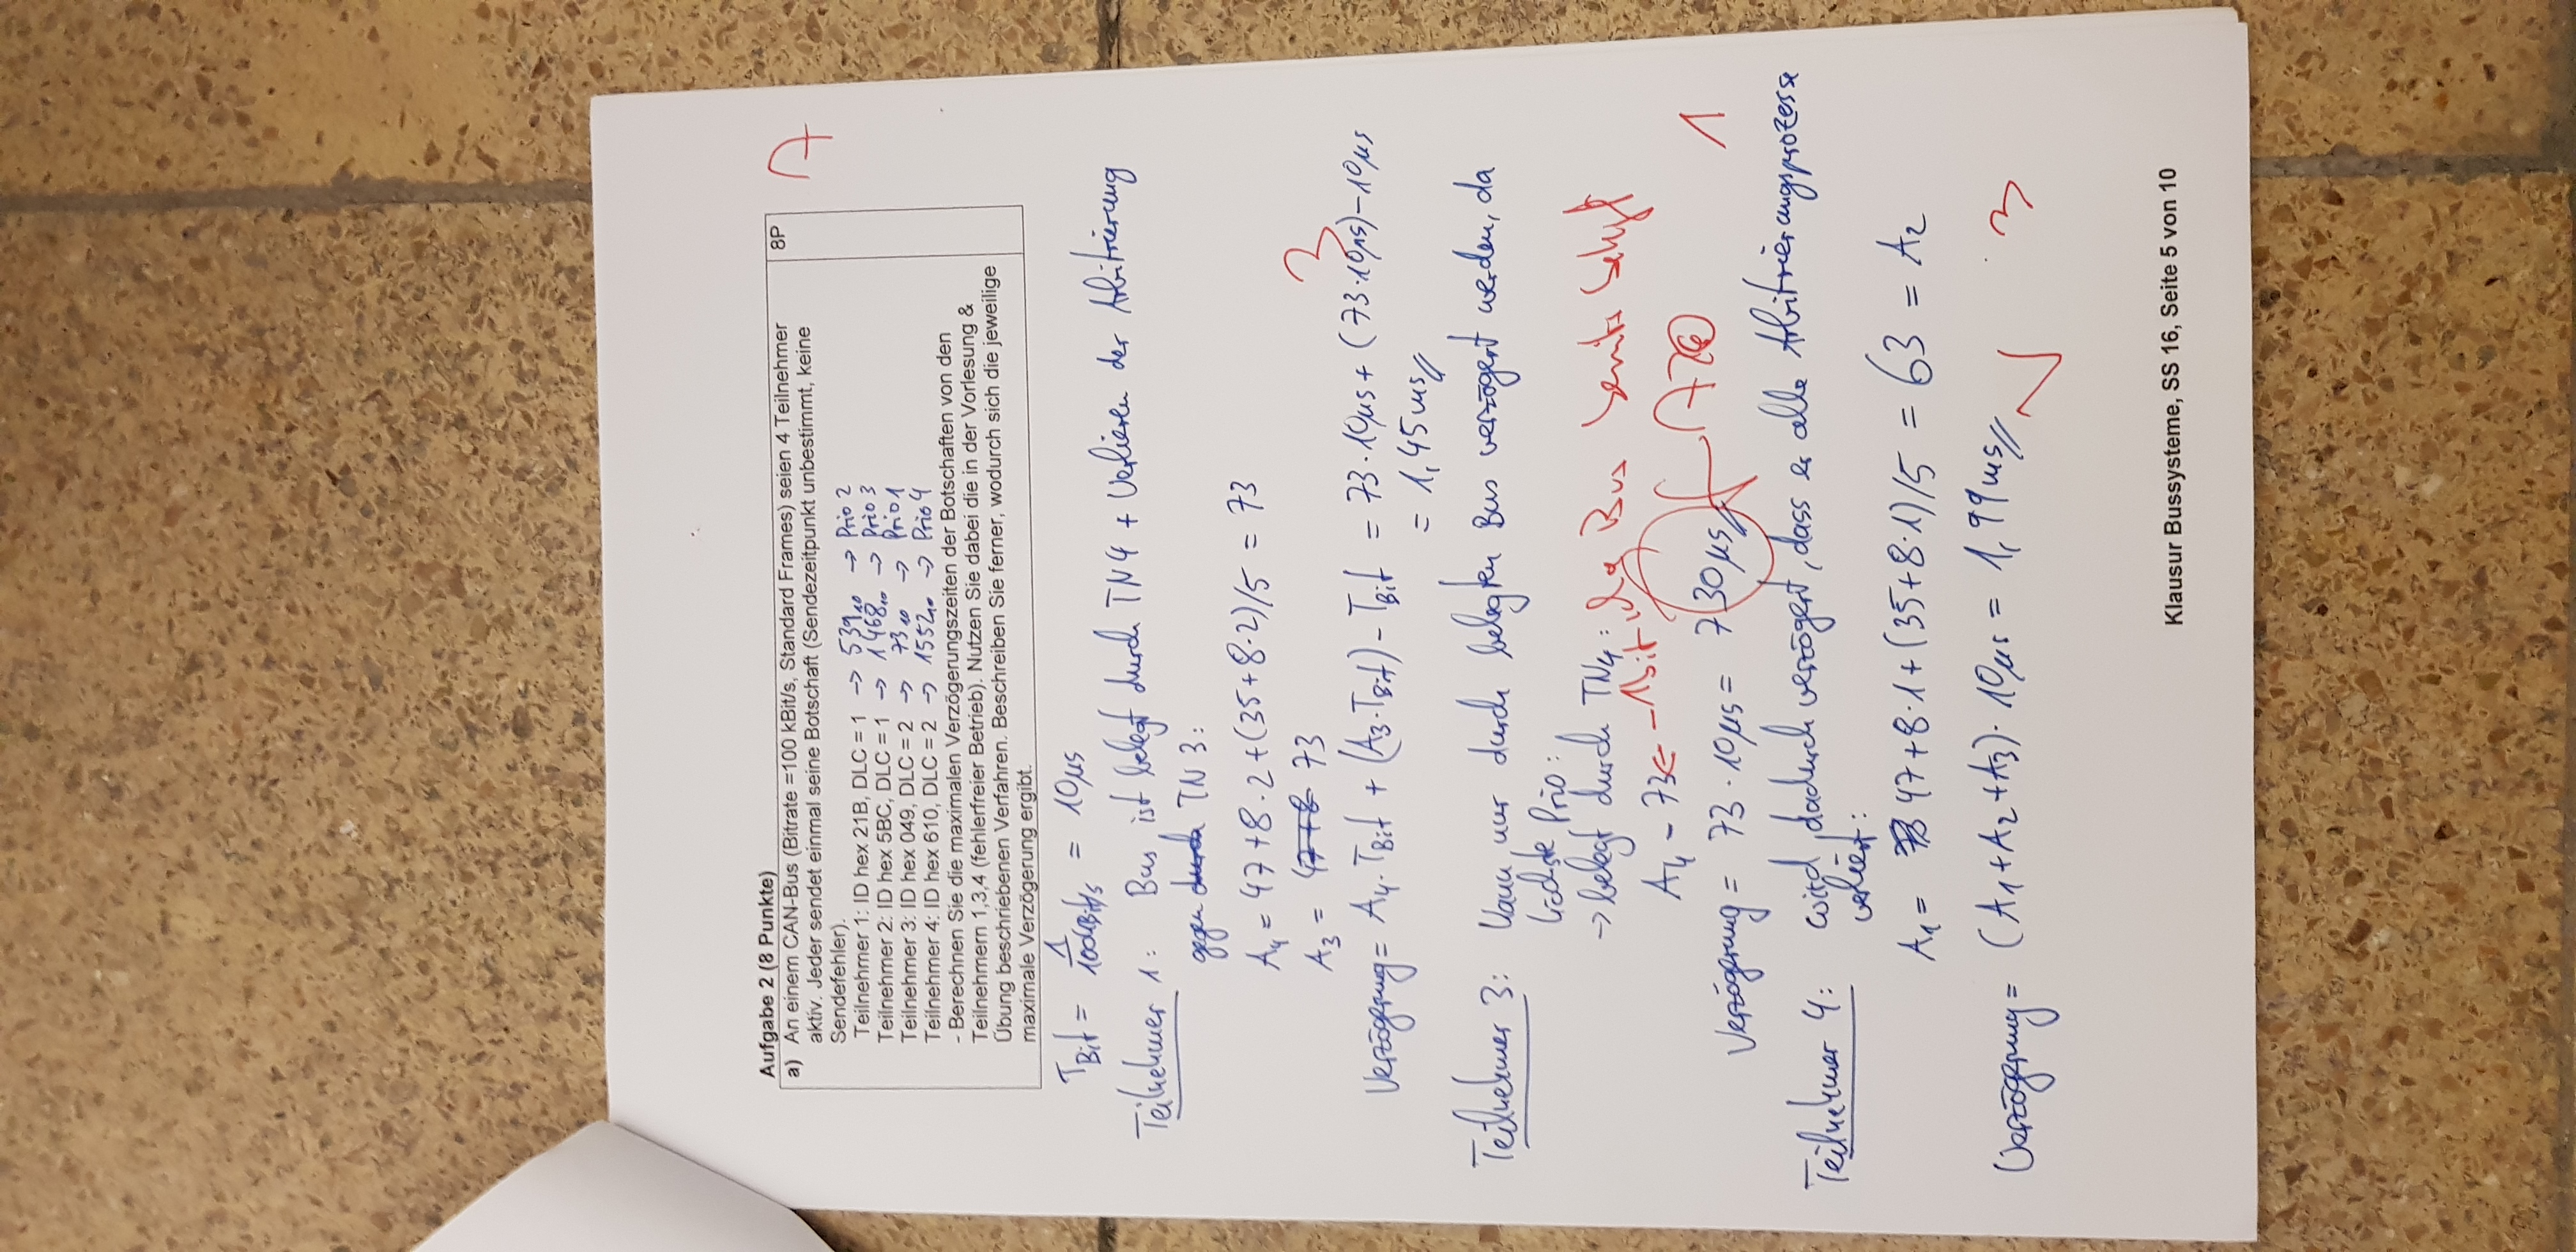 Aufgabe 2 (8 Punkte)
a) An einem CAN-Bus (Bitrate =100 kBit/s, Standard Frames) seien 4 Teilnehmer 8P
7
aktiv. Jeder sendet einmal seine Botschaft (Sendezeitpunkt unbestimmt, keine
Sendefehler).
Teilnehmer 1: ID hex 21B, DLC = 1 → 539₁₀ → Prio 2
Teilnehmer 2: ID hex 5BC, DLC = 1 → 1468₁₀ → Prio 3
Teilnehmer 3: ID hex 049, DLC = 2 → 73₁₀ → Prio 1
Teilnehmer 4: ID hex 610, DLC = 2 → 1552₁₀ → Prio 4
- Berechnen Sie die maximalen Verzögerungszeiten der Botschaften von den
Teilnehmern 1,3,4 (fehlerfreier Betrieb). Nutzen Sie dabei die in der Vorlesung &
Übung beschriebenen Verfahren. Beschreiben Sie ferner, wodurch sich die jeweilige
maximale Verzögerung ergibt.
TBit = 1/100kBit/s = 10µs
Teilnehmer 1: Bus ist belegt durch TN4 + Verlieren der Arbitrierung
gegen durch TN 3:
A₄ = 47+8·2+(35+8·2)/5 = 73
A₃ = 47+8 73
3
Verzögerung = A₄·TBit + (A₃·TBit) - TBit = 73·10µs + (73·10µs) - 10µs
= 1,45ms
Teilnehmer 3: Kann nur durch belegten Bus verzögert werden, da
höchste Prio:
→ belegt durch TN4:
A₄ - 73 ← -1Bit, da Bus bereits belegt
Verzögerung = 73·10µs = 730µs 720 1
Teilnehmer 4: wird dadurch verzögert, dass er alle Arbitrierungsprozesse
verliert:
A₁ = 47+8·1+(35+8·1)/5 = 63 = A₂
Verzögerung = (A₁+A₂+A₃)·10µs = 1,99ms ✓ 3
Klausur Bussysteme, SS 16, Seite 5 von 10